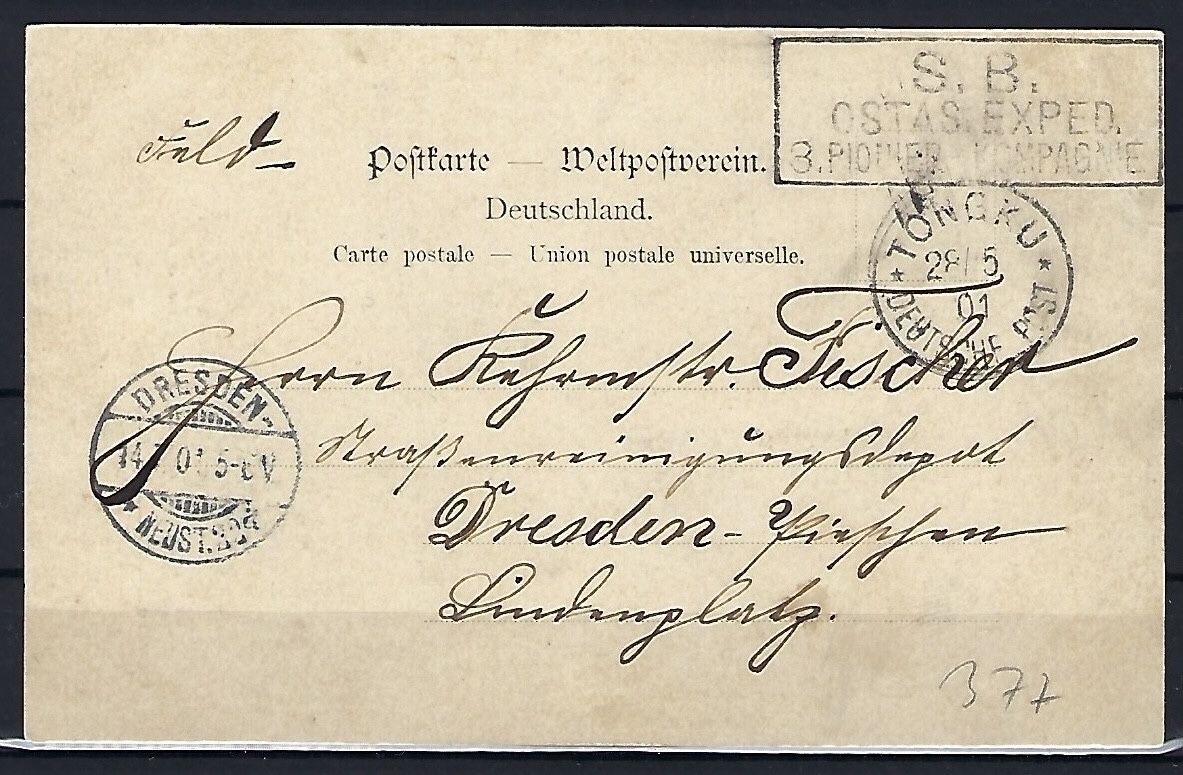 S. B.
OSTAS. EXPED.
3. PIONIER KOMPAGNIE
Feld-
Postkarte — Weltpostverein.
Deutschland.
Carte postale — Union postale universelle.
TONGKU
28/5
01
DEUTSCHE POST
Herrn Kehrmstr. Fischer
Straßenreinigungsdepot
Dresden-Pieschen
Lindenplatz.
DRESDEN-
14. 7. 01 5-6 V
NEUST.
377